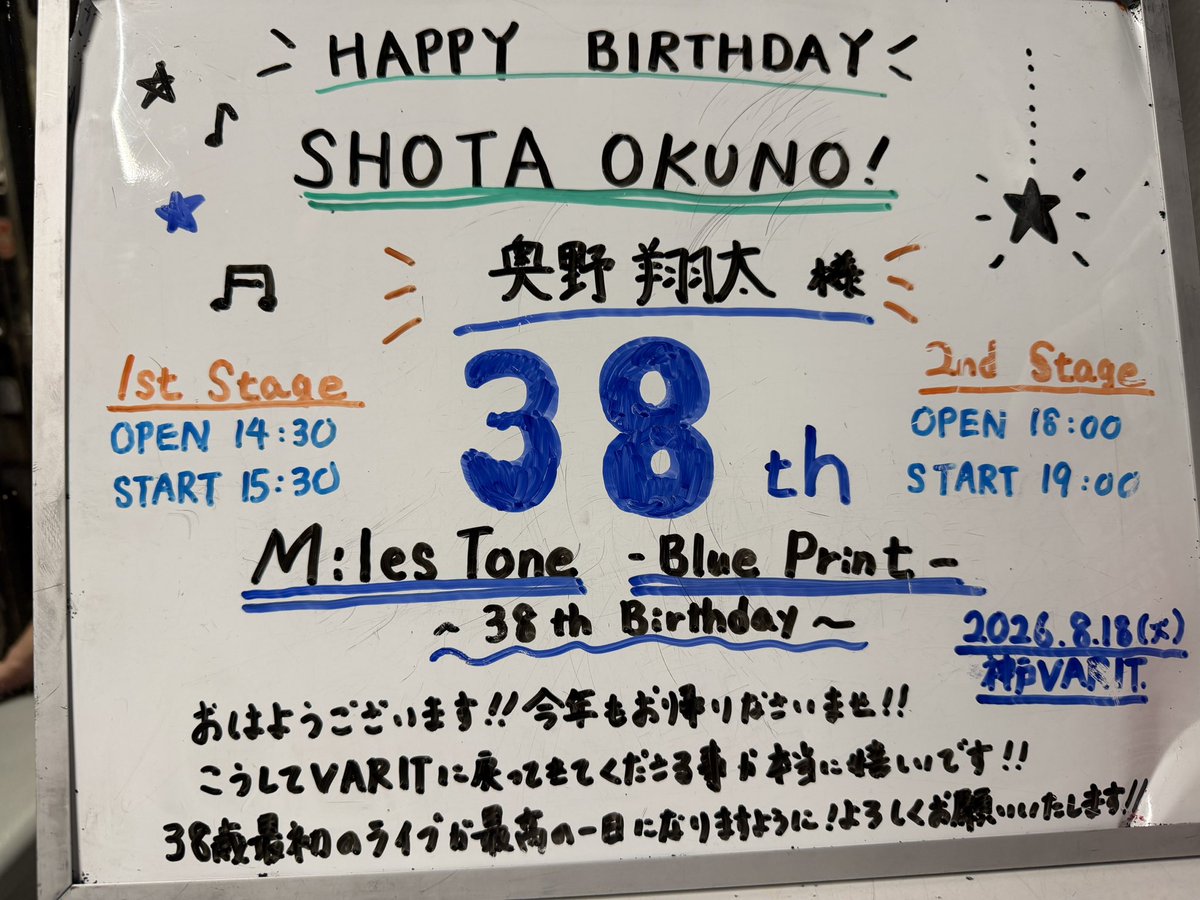 HAPPY BIRTHDAY
SHOTA OKUNO!
奥野 翔太 様
1st Stage
OPEN 14:30
START 15:30
38th
2nd Stage
OPEN 18:00
START 19:00
Miles Tone -Blue Print-
~38th Birthday~
2026.8.18(火)
神戸VARIT.
おはようございます!!今年もお帰りなさいませ!!
こうしてVARITに戻ってきてくださる事が本当に嬉しいです!!
38歳最初のライブが最高の一日になりますように!よろしくお願いいたします!!